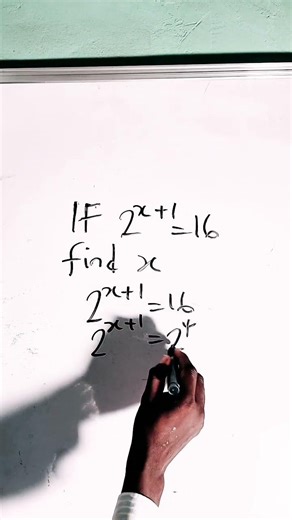 If 2^{x+1} = 16
find x
2^{x+1} = 16
2^{x+1} = 2^4